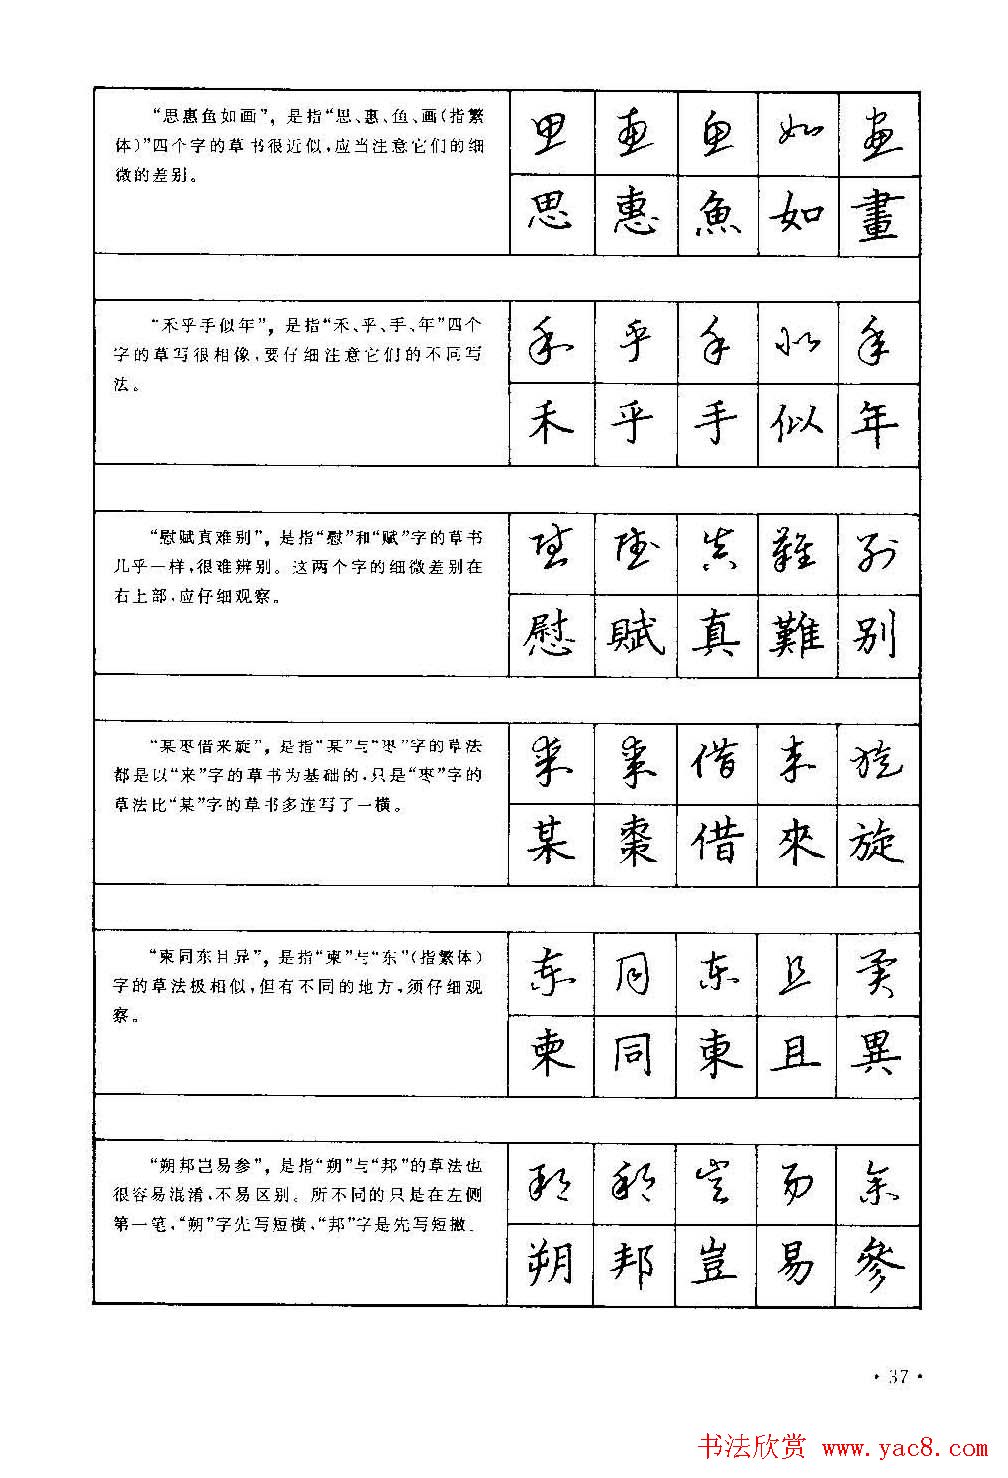 “思惠鱼如画”，是指“思、惠、鱼、画(指繁
体)”四个字的草书很近似，应当注意它们的细
微的差别。
思 惠 魚 如 畫
思 惠 魚 如 畫
“禾乎手似年”，是指“禾、乎、手、年”四个
字的草写很相像，要仔细注意它们的不同写
法。
禾 乎 手 似 年
禾 乎 手 似 年
“慰赋真难别”，是指“慰”和“赋”字的草书
几乎一样，很难辨别。这两个字的细微差别在
右上部，应仔细观察。
慰 賦 真 難 别
慰 賦 真 難 别
“某枣借来旋”，是指“某”与“枣”字的草法
都是以“来”字的草书为基础的，只是“枣”字的
草法比“某”字的草书多连写了一横。
某 棗 借 来 旋
某 棗 借 來 旋
“柬同东且异”，是指“柬”与“东”(指繁体)
字的草法极相似，但有不同的地方，须仔细观
察。
柬 同 东 且 異
柬 同 東 且 異
“朔邦岂易参”，是指“朔”与“邦”的草法也
很容易混淆，不易区别。所不同的只是在左侧
第一笔，“朔”字先写短横，“邦”字是先写短撇。
朔 邦 豈 易 参
朔 邦 豈 易 參
·37·
书法欣赏 www.yac8.com